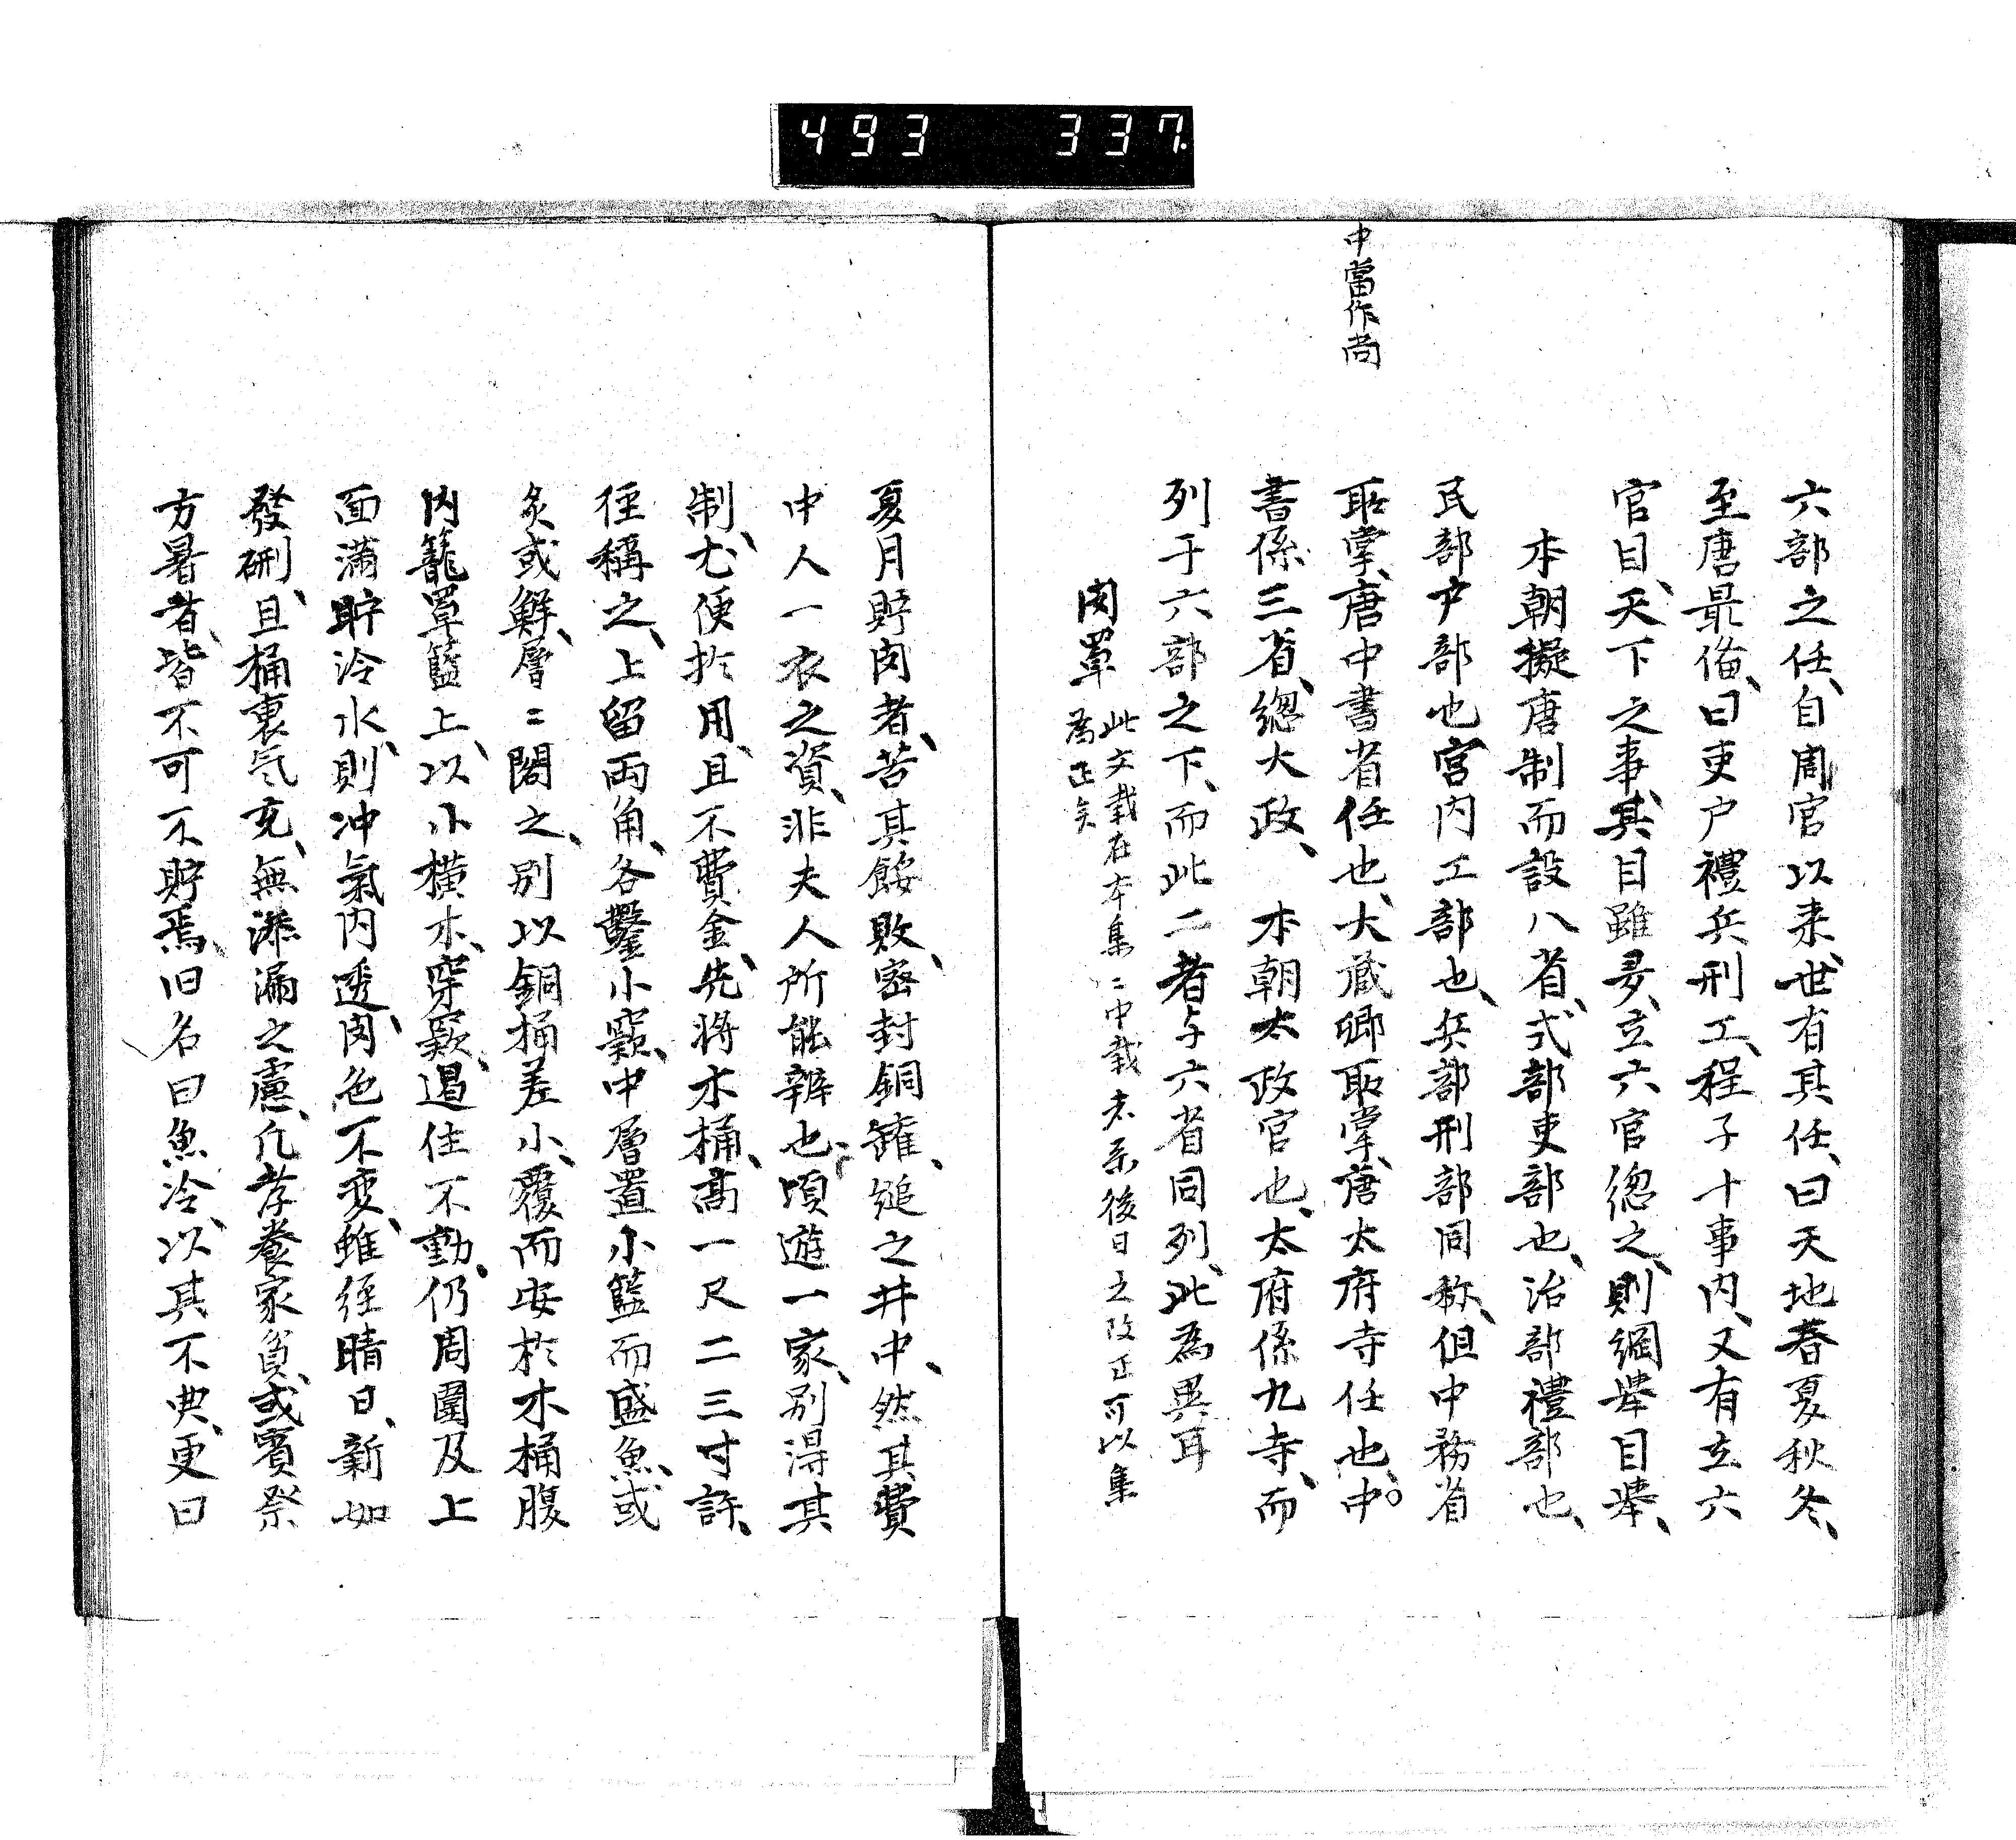 493 337
六部之任、自周官以来、世有其任、曰天地春夏秋冬、
至唐最備、曰吏戸禮兵刑工、程子十事内、又有立六
官目、天下之事、其目雖多、立六官総之、則綱举目举、
本朝擬唐制而設八省、式部吏部也、治部禮部也、
民部戸部也宮内工部也、兵部刑部同称、但中務省
中當作尚
职掌、唐中書省任也、大蔵卿职掌、唐太府寺任也、中
書係三省、總大政、本朝太政官也、太府係九寺、而
列于六部之下、而此二者与六省同列、此為異耳
肉罩
此文載在本集二中載未系後日之改正可以集
為正矣
夏月貯肉者、苦其餒敗、密封銅罐、縋之井中、然其費
中人一衣之資、非夫人所能辨也、頃遊一家、別得其
制、尤便扵用、且不費金、先將木桶、高一尺二三寸許、
径稱之、上留両角、各鑿小竅、中層置小籃而盛魚、或
炙或鮮、層〻閣之、別以銅桶差小、覆而安扵木桶腹
内籠罩籃上、以小横木、穿竅、遏住不動、仍周圍及上
面滿貯冷水、則冲氣内透、肉色不变、雖経晴日、新如
發硎、且桶裏气充、無滲漏之慮、凡孝養家貧、或賓祭
方暑者、皆不可不貯焉、旧名曰魚冷、以其不典、更曰